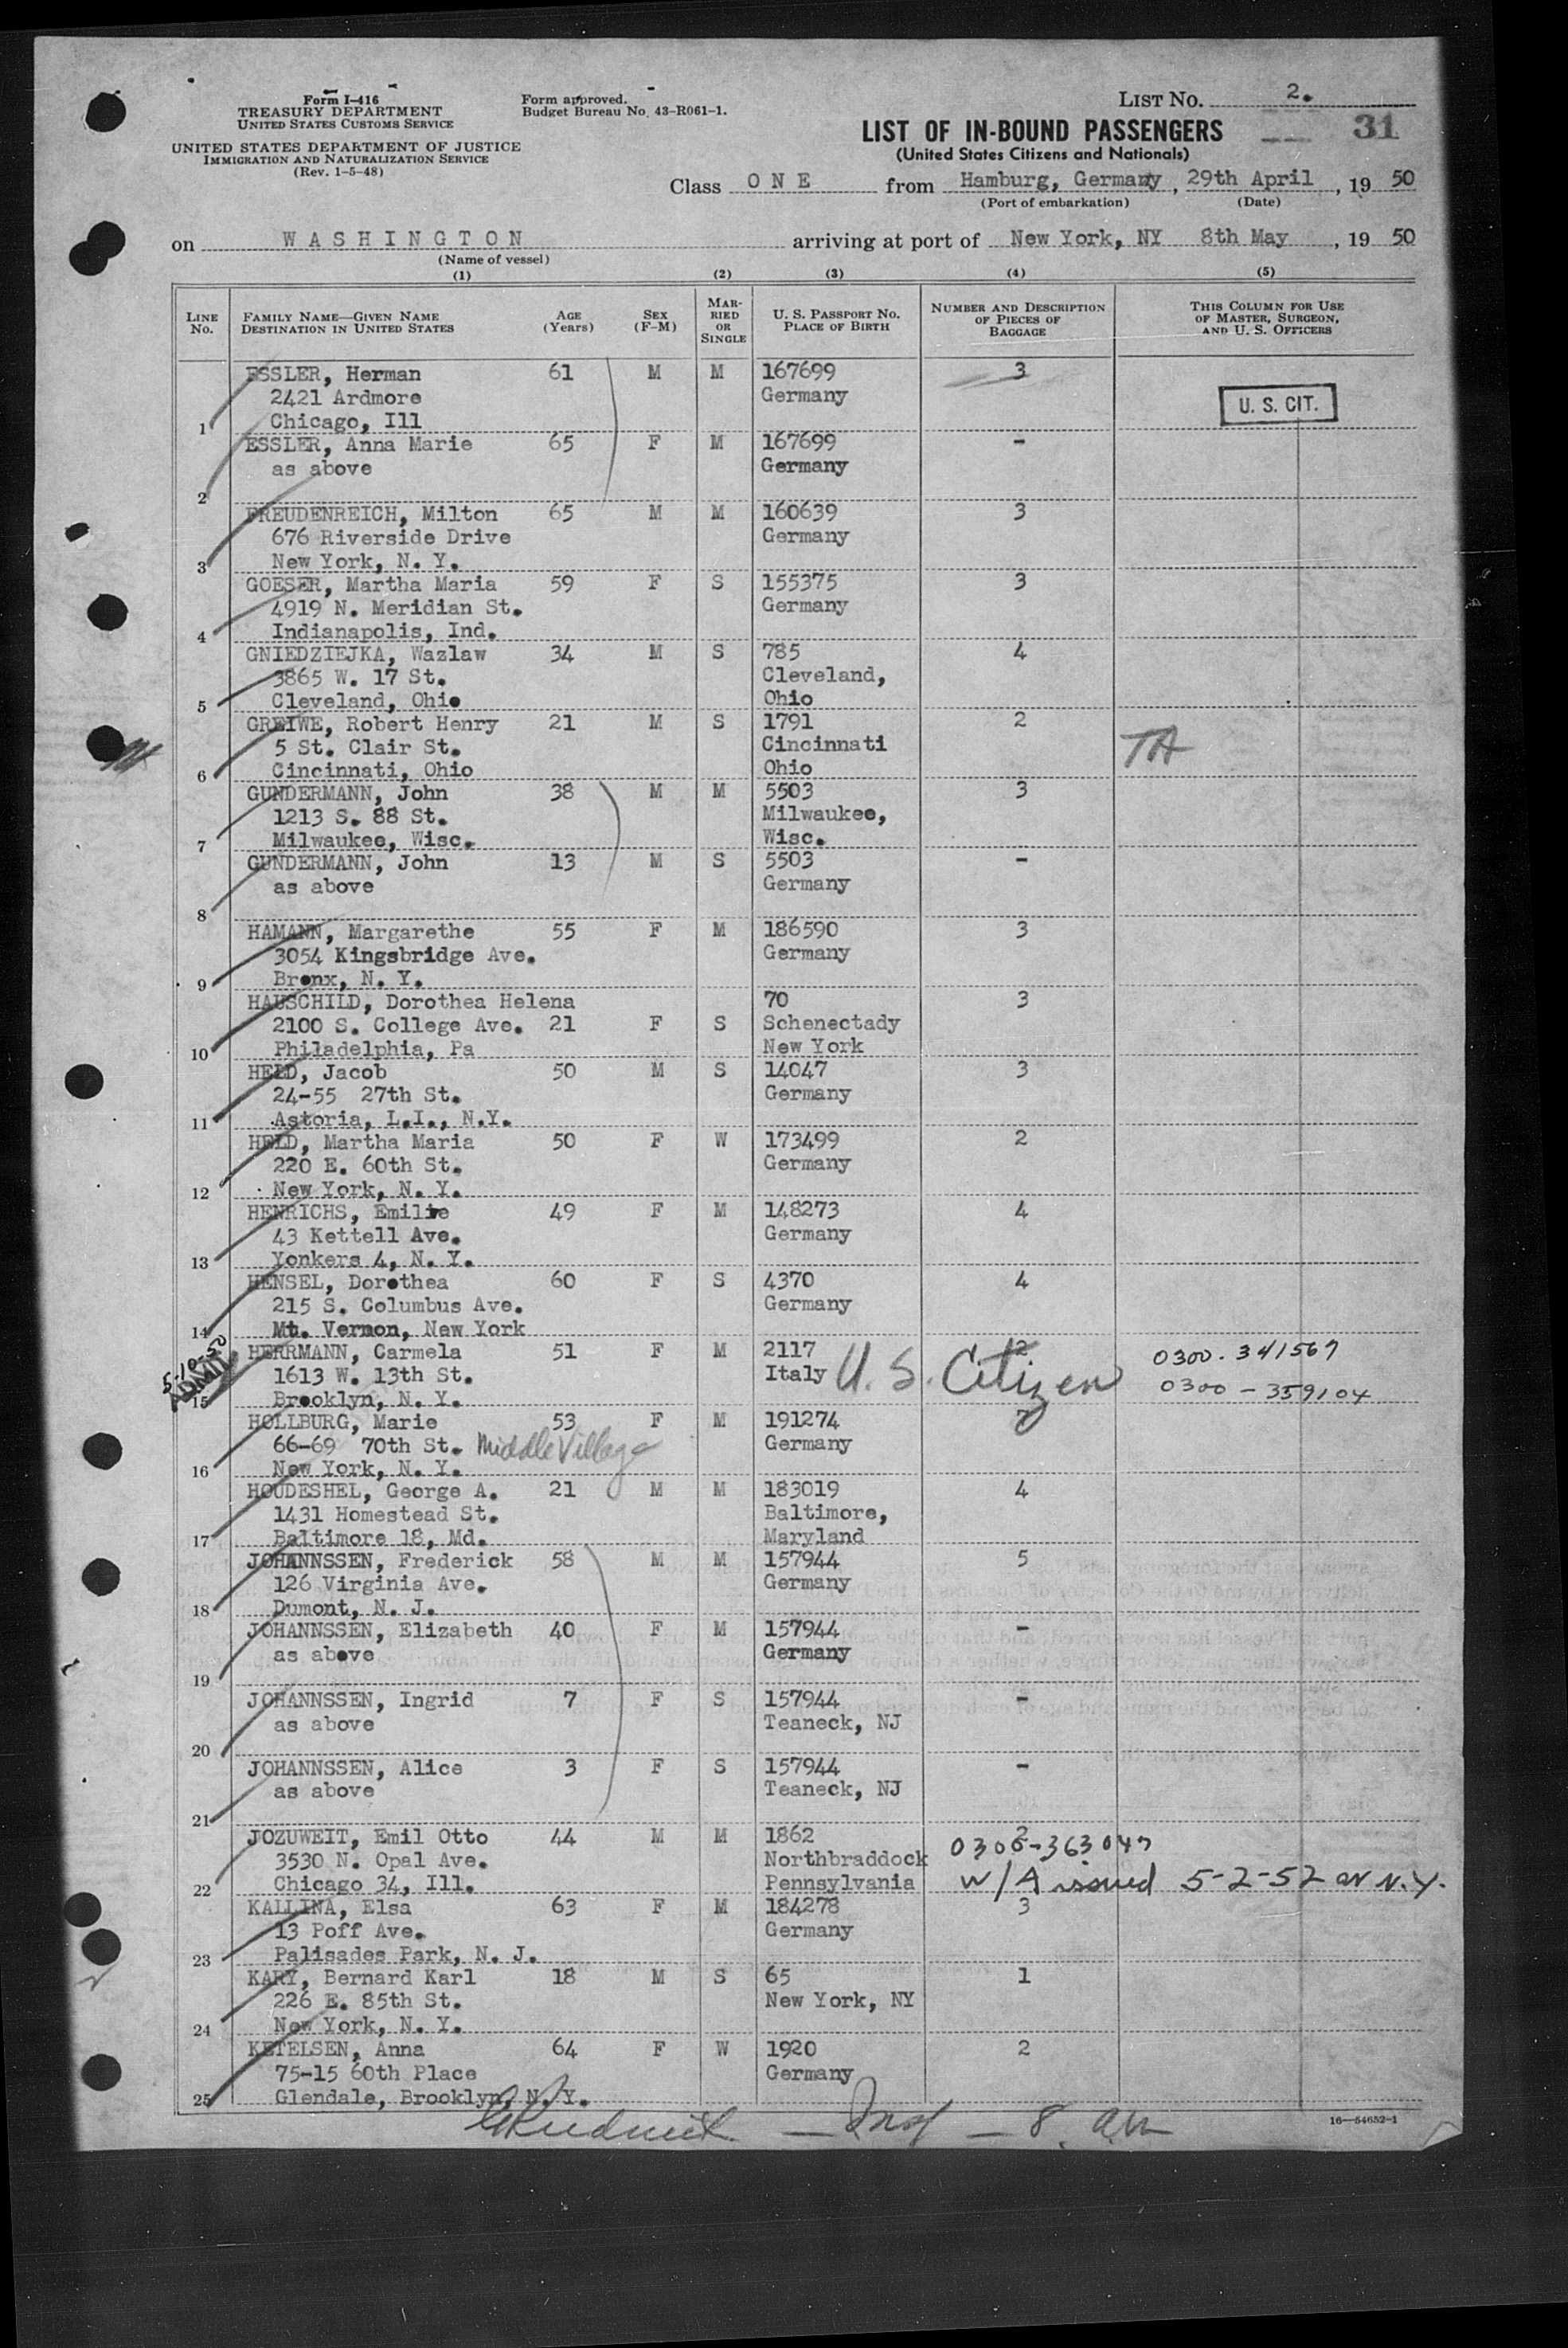 Form I-416
TREASURY DEPARTMENT
UNITED STATES CUSTOMS SERVICE
UNITED STATES DEPARTMENT OF JUSTICE
IMMIGRATION AND NATURALIZATION SERVICE
(Rev. 1-5-48)
Form approved.
Budget Bureau No. 43-R061-1.
LIST No. 2.
LIST OF IN-BOUND PASSENGERS 31
(United States Citizens and Nationals)
Class O N E from Hamburg, Germany, 29th April, 19 50
(Port of embarkation) (Date)
on W A S H I N G T O N arriving at port of New York, NY 8th May, 19 50
(Name of vessel)
(1) (2) (3) (4) (5)
LINE No. FAMILY NAME—GIVEN NAME DESTINATION IN UNITED STATES AGE (Years) SEX (F-M) MARRIED OR SINGLE U. S. PASSPORT No. PLACE OF BIRTH NUMBER AND DESCRIPTION OF PIECES OF BAGGAGE THIS COLUMN FOR USE OF MASTER, SURGEON, AND U. S. OFFICERS
ESSLER, Herman 61 M M 167699 3
2421 Ardmore Germany U. S. CIT.
1 Chicago, Ill
ESSLER, Anna Marie 65 F M 167699 -
as above Germany
2
FREUDENREICH, Milton 65 M M 160639 3
676 Riverside Drive Germany
3 New York, N. Y.
GOESER, Martha Maria 59 F S 155375 3
4919 N. Meridian St. Germany
4 Indianapolis, Ind.
GNIEDZIEJKA, Wazlaw 34 M S 785 4
3865 W. 17 St. Cleveland,
5 Cleveland, Ohio Ohio
GREIWE, Robert Henry 21 M S 1791 2
5 St. Clair St. Cincinnati TA
6 Cincinnati, Ohio Ohio
GUNDERMANN, John 38 M M 5503 3
1213 S. 88 St. Milwaukee,
7 Milwaukee, Wisc. Wisc.
GUNDERMANN, John 13 M S 5503 -
as above Germany
8
HAMANN, Margarethe 55 F M 186590 3
3054 Kingsbridge Ave. Germany
9 Bronx, N. Y.
HAUSCHILD, Dorothea Helena 70 3
2100 S. College Ave. 21 F S Schenectady
10 Philadelphia, Pa New York
HELD, Jacob 50 M S 14047 3
24-55 27th St. Germany
11 Astoria, L.I., N.Y.
HELD, Martha Maria 50 F W 173499 2
220 E. 60th St. Germany
12 New York, N. Y.
HENRICHS, Emilie 49 F M 148273 4
43 Kettell Ave. Germany
13 Yonkers 4, N. Y.
HENSEL, Dorothea 60 F S 4370 4
215 S. Columbus Ave. Germany
14 Mt. Vernon, New York
5-10-50 ADMIT
HERRMANN, Carmela 51 F M 2117 2 0300-341567
1613 W. 13th St. Italy U. S. Citizen 0300-359104
15 Brooklyn, N. Y.
HOLLBURG, Marie 53 F M 191274
66-69 70th St. Middle Village Germany
16 New York, N. Y.
HOUDESHEL, George A. 21 M M 183019 4
1431 Homestead St. Baltimore,
17 Baltimore 18, Md. Maryland
JOHANNSSEN, Frederick 58 M M 157944 5
126 Virginia Ave. Germany
18 Dumont, N. J.
JOHANNSSEN, Elizabeth 40 F M 157944 -
as above Germany
19
JOHANNSSEN, Ingrid 7 F S 157944 -
as above Teaneck, NJ
20
JOHANNSSEN, Alice 3 F S 157944 -
as above Teaneck, NJ
21
JOZUWEIT, Emil Otto 44 M M 1862 0300-363047
3530 N. Opal Ave. Northbraddock
22 Chicago 34, Ill. Pennsylvania W/A issued 5-2-52 at N.Y.
KALLINA, Elsa 63 F M 184278 3
13 Poff Ave. Germany
23 Palisades Park, N. J.
KARY, Bernard Karl 18 M S 65 1
226 E. 85th St. New York, NY
24 New York, N. Y.
KETELSEN, Anna 64 F W 1920 2
75-15 60th Place Germany
25 Glendale, Brooklyn, N. Y.
16—54652-1